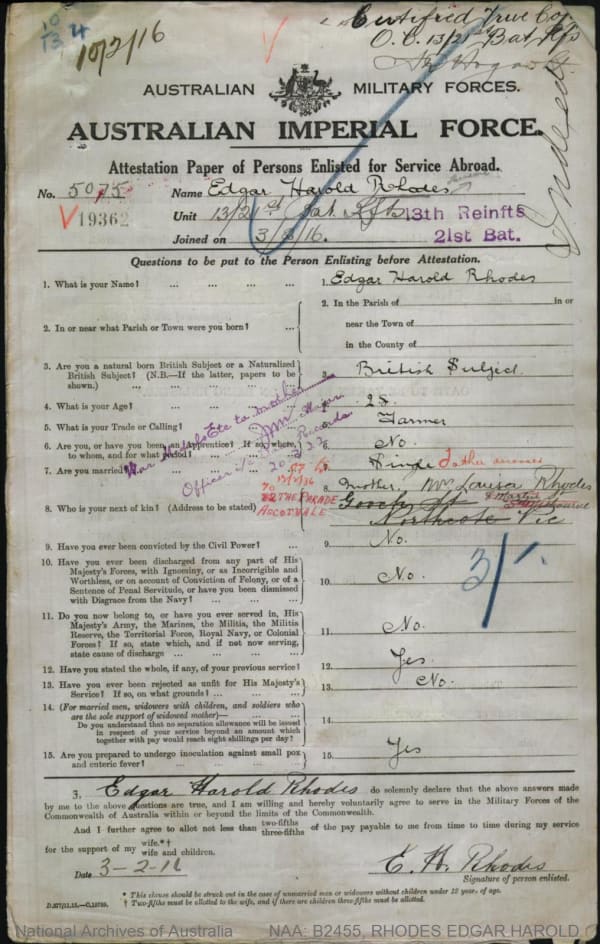 10/13
10/2/16
Certified True Copy
O.C. 13/21st Bat. Rfs
AUSTRALIAN MILITARY FORCES.
AUSTRALIAN IMPERIAL FORCE.
Attestation Paper of Persons Enlisted for Service Abroad.
No. 5075 Name Edgar Harold Rhodes
19362 Unit 13/21st Bat. Rfts 13th Reinfts
21st Bat.
Joined on 3/2/16.
Questions to be put to the Person Enlisting before Attestation.
1. What is your Name? ... ... ... ... 1. Edgar Harold Rhodes
2. In or near what Parish or Town were you born? ... 2. In the Parish of in or
near the Town of
in the County of
3. Are you a natural born British Subject or a Naturalized
British Subject? (N.B.—If the latter, papers to be
shown.) ... ... ... ... 3. British Subject.
4. What is your Age? ... ... ... ... 4.
5. What is your Trade or Calling? ... ... 5. Farmer
6. Are you, or have you been an Apprentice? If so, where,
to whom, and for what period? ... ... 6. No.
7. Are you married? 7. Single Father
8. Who is your next of kin? (Address to be stated) 8. Mother, Mrs Louisa Rhodes
Gooch St
Northcote Vic
72 THE PARADE
ASCOTVALE
Melbourne
War Medals Etc to mother
Major
Officer i/c Base Records
20.3.22
9. Have you ever been convicted by the Civil Power? ... 9. No.
10. Have you ever been discharged from any part of His
Majesty's Forces, with Ignominy, or as Incorrigible and
Worthless, or on account of Conviction of Felony, or of a
Sentence of Penal Servitude, or have you been dismissed
with Disgrace from the Navy? ... ... ... 10. No.
3/-
11. Do you now belong to, or have you ever served in, His
Majesty's Army, the Marines, the Militia, the Militia
Reserve, the Territorial Force, Royal Navy, or Colonial
Forces? If so, state which, and if not now serving,
state cause of discharge ... ... ... 11. No.
12. Have you stated the whole, if any, of your previous service? 12. Yes.
13. Have you ever been rejected as unfit for His Majesty's
Service? If so, on what grounds? ... ... 13. No.
14. (For married men, widowers with children, and soldiers who
are the sole support of widowed mother)—
Do you understand that no separation allowance will be issued
in respect of your service beyond an amount which
together with pay would reach eight shillings per day? 14.
15. Are you prepared to undergo inoculation against small pox
and enteric fever? ... ... ... 15. Yes
3. Edgar Harold Rhodes do solemnly declare that the above answers made
by me to the above questions are true, and I am willing and hereby voluntarily agree to serve in the Military Forces of the
Commonwealth of Australia within or beyond the limits of the Commonwealth.
And I further agree to allot not less than two-fifths three-fifths of the pay payable to me from time to time during my service
for the support of my wife.*† wife and children.
Date 3-2-16 E. H. Rhodes
Signature of person enlisted.
* This clause should be struck out in the case of unmarried men or widowers without children under 18 years of age.
† Two-fifths must be allotted to the wife, and if there are children three-fifths must be allotted.
National Archives of Australia NAA: B2455, RHODES EDGAR HAROLD